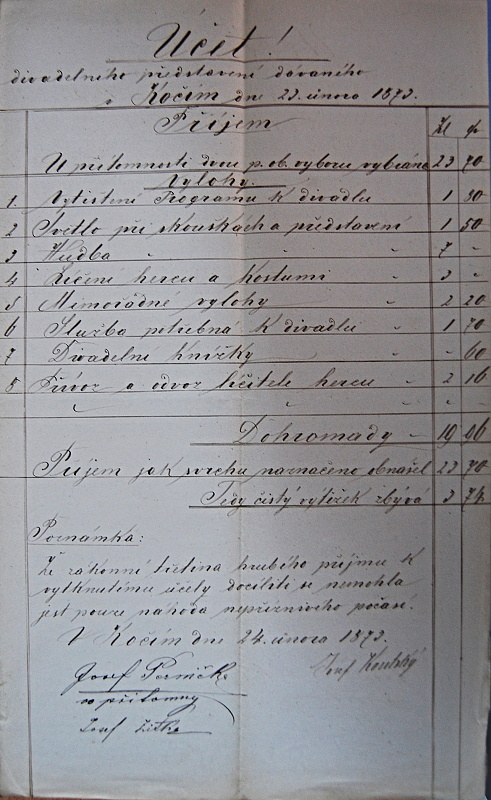 Účet!
divadelního představení dávaného
v Kočím dne 23. února 1873.
Příjem Zl kr
U přítomnosti dvou p. ob. výboru vybráno 23 70
Výlohy.
1. Vytištění Programu k divadlu 1 80
2 Světlo při skouškách a představení 1 50
3 Hudba " " " 7 "
4 Líčení herců a kostumi " 3 "
5 Mimořádné výlohy " 2 20
6 Služba potřebná k divadlu " 1 70
7 Divadelní knížky " " 60
8 Přívoz a odvoz líčitele herců " 2 16
" " " "
Dohromady " 19 96
Příjem jak svrchu naznačeno obnášel 23 70
Tedy čistý výtěžek zbývá 3 74
Poznámka:
Že zákonní třetina hrubého příjmu k
vytknutému účely docíliti se nemohla
jest pouze náhoda nepříznivého počasí.
V Kočím dne 24. února 1873.
Josef
Josef Koutský
co přítomný
Josef